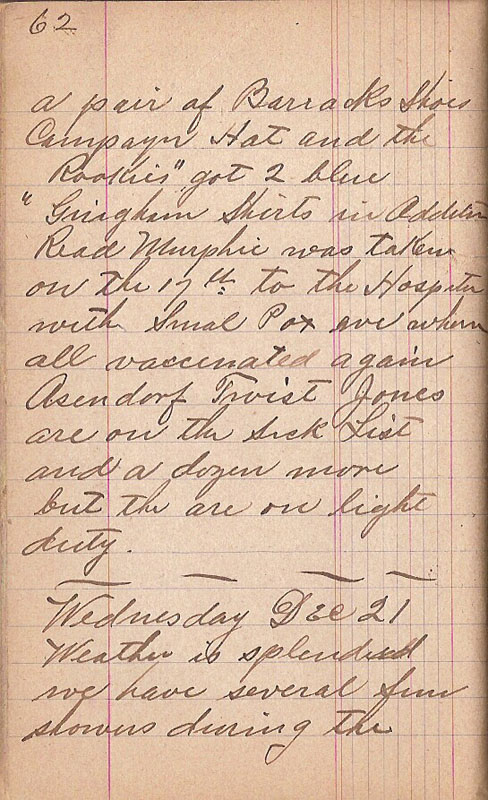 62
a pair of Barracks Shoes
Campayn Hat and the
Rookies" got 2 blue
"Gingham Shirts in Addition
Read Murphie was taken
on the 17th. to the Hospital
with Smal Pox we where
all vaccinated again
Asendorf Twist Jones
are on the sick List
and a dozen more
but the are on light
duty.
Wednesday Dec 21
Weather is splendid
we have several fine
showers during the